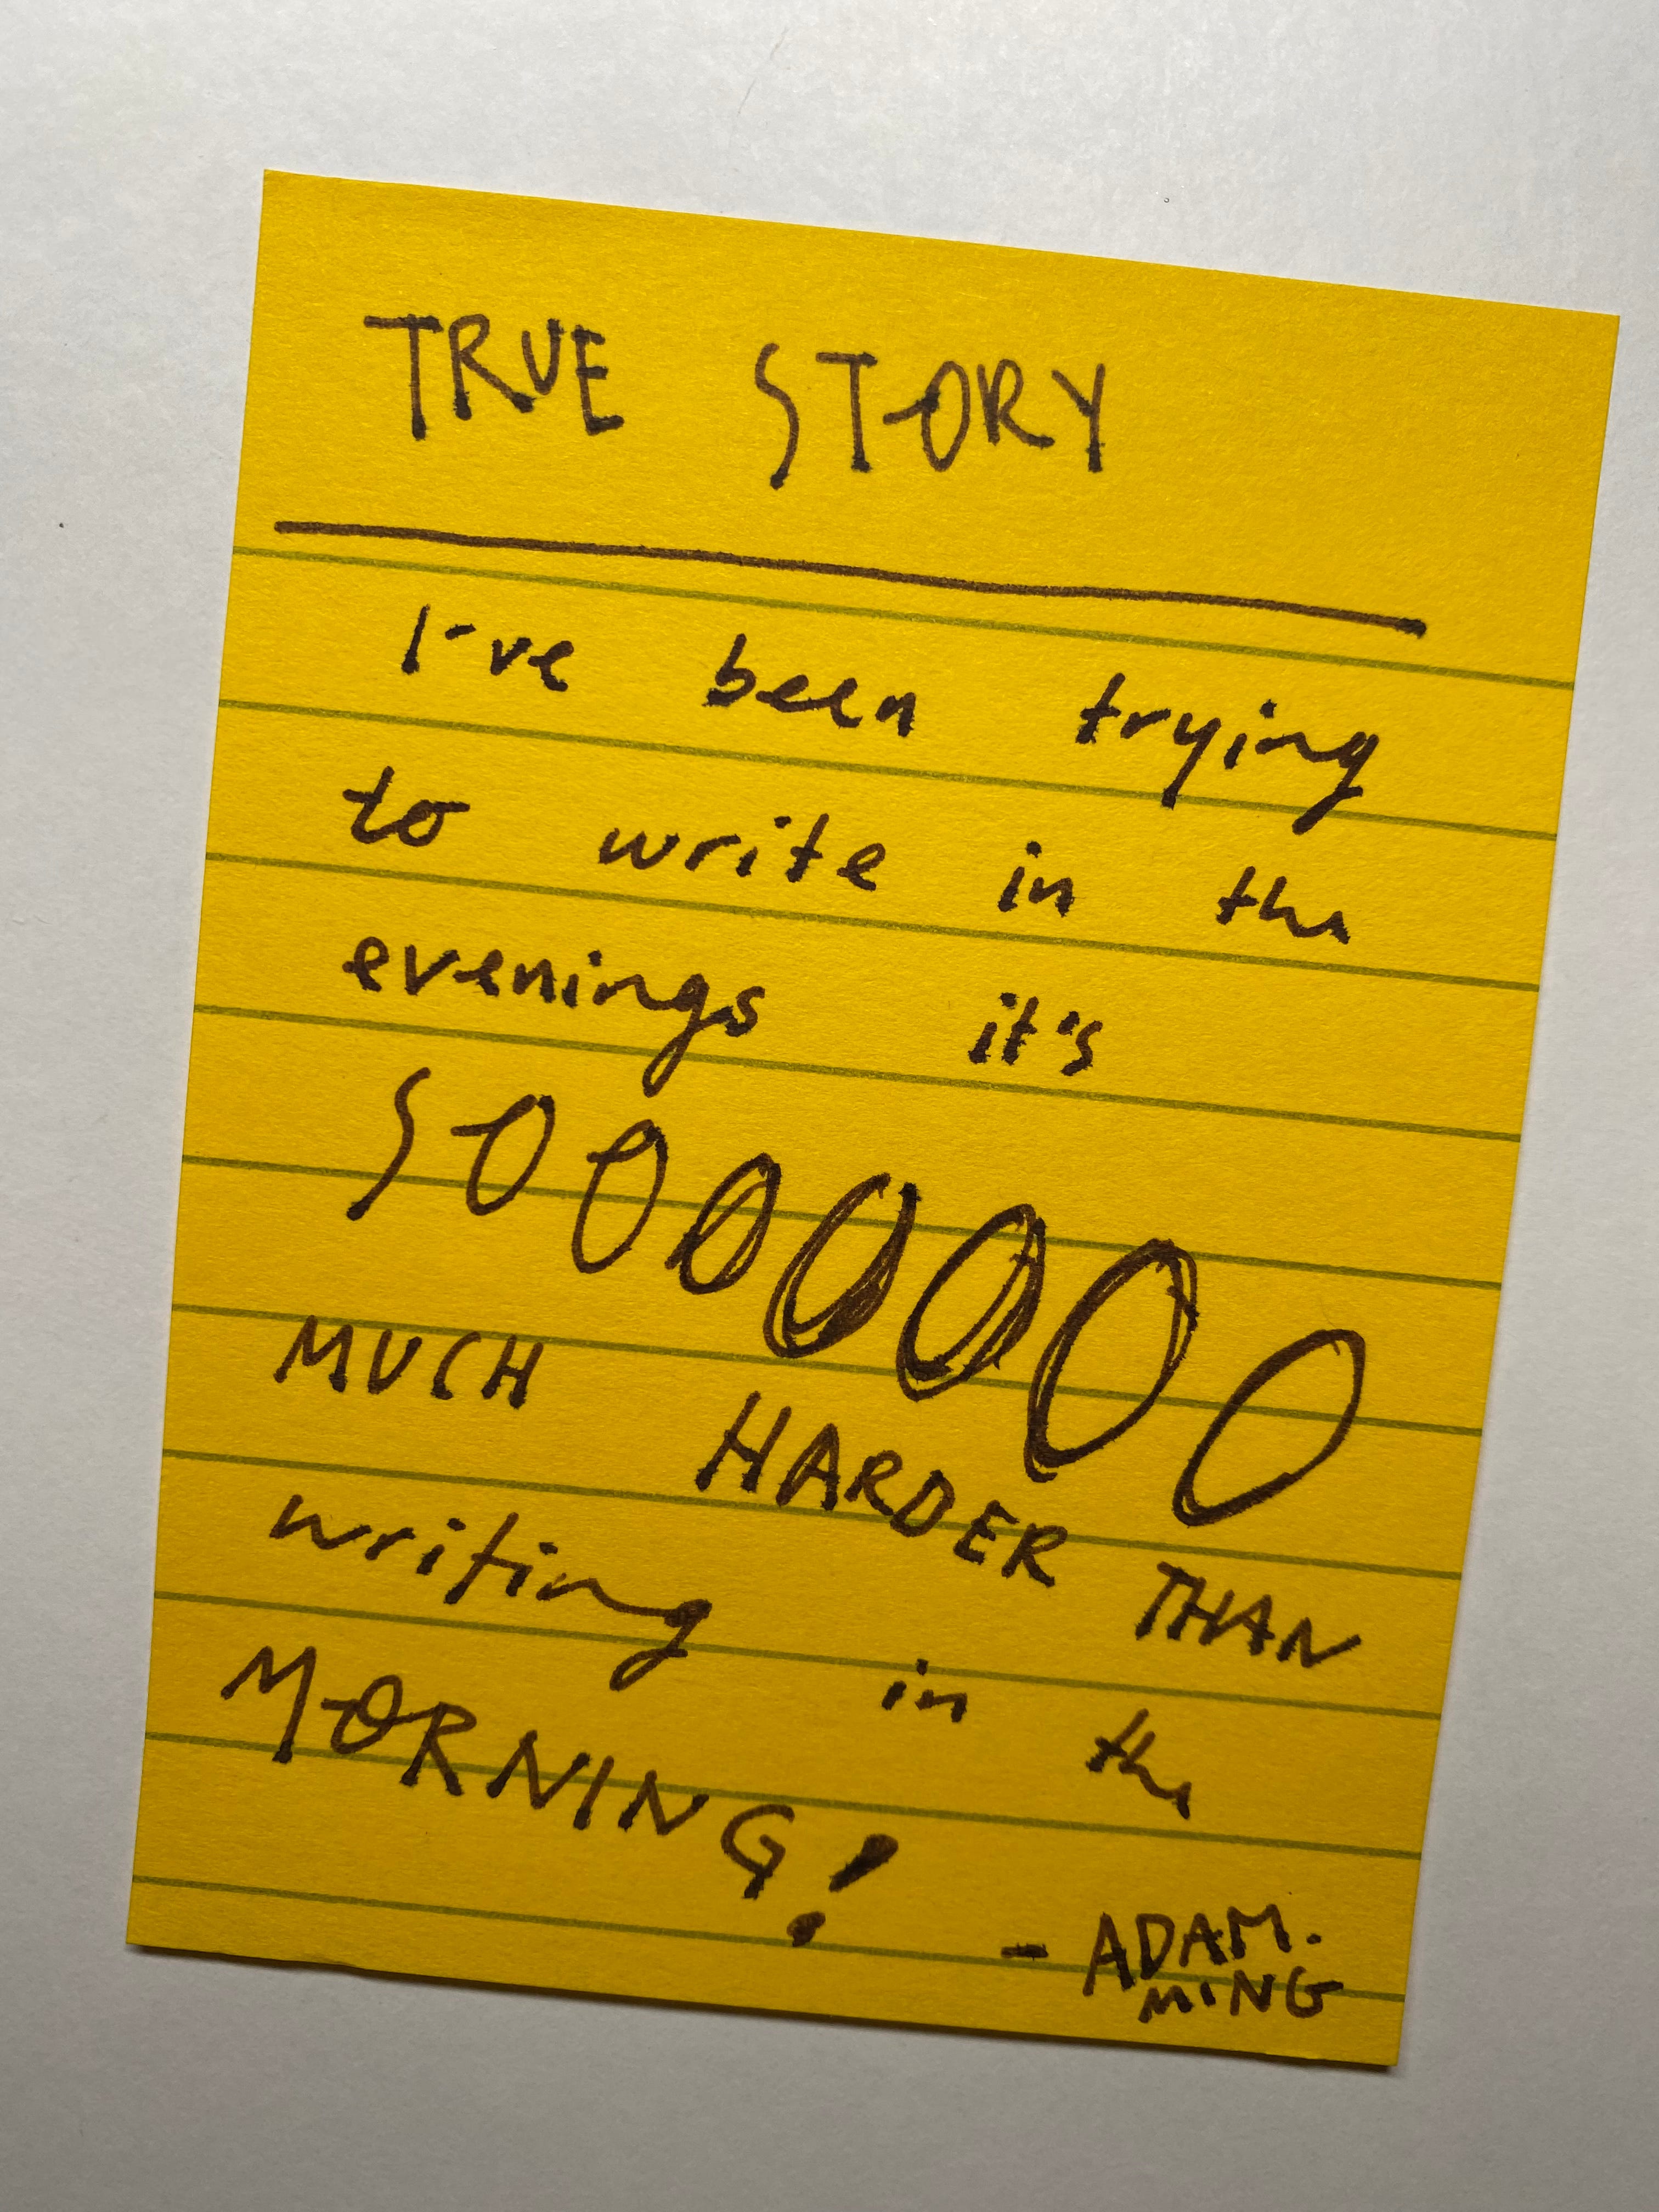 TRUE STORY
I've been trying
to write in the
evenings it's
SOOOOOOO
MUCH HARDER THAN
writing in the
MORNING!
- ADAM.
MING